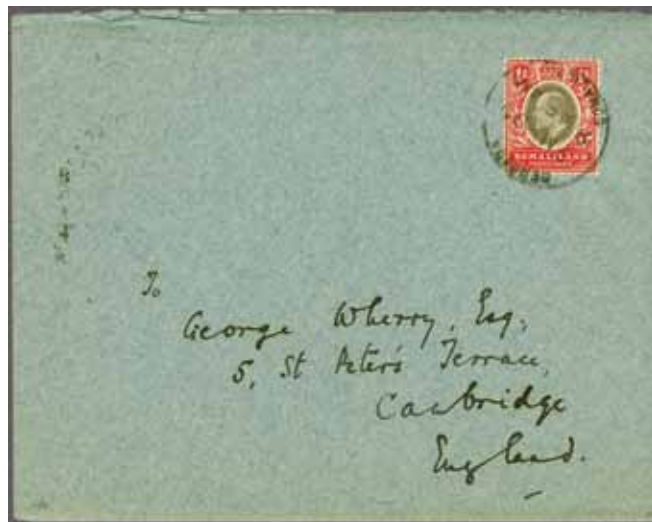 SOMALILAND
BERBERA
To
George Wherry, Esq,
5, St Peter's Terrace,
Cambridge
England.